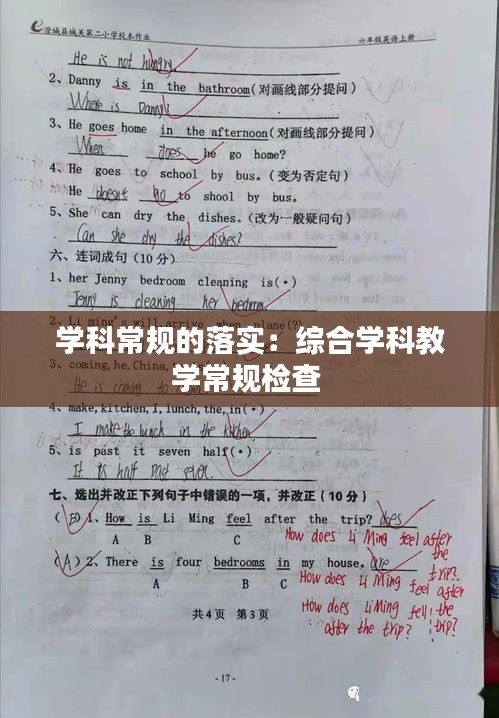 澄城县城关第二小学校本作业 六年级英语上册
He is not hungry.
2、Danny is in the bathroom(对画线部分提问)
Where is Danny?
3、He goes home in the afternoon(对画线部分提问)
When does he go home?
4、He goes to school by bus。(变为否定句)
He doesn't go to shool by bus.
5、She can dry the dishes。(改为一般疑问句)
Can she dry the dishes?
六、连词成句(10分)
1、her Jenny bedroom cleaning is(·)
Jenny is cleaning her bedroom.
学科常规的落实：综合学科教
学常规检查
3、coming,he,China,
4、make,kitchen,I,lunch,the,in(·)
I make the lunch in the kitchen
5、is past it seven half(·)
It is half past seven.
七、选出并改正下列句子中错误的一项，并改正(10分)
(B)1、How is Li Ming feel after the trip? does
A B C
How does Li Ming feel after
the
trip?
(A)2、There is four bedrooms in my house。are
A B C
How does Li Ming feel after
How does Li Ming fell the
after the trip? trip?
共4页 第3页
-17-